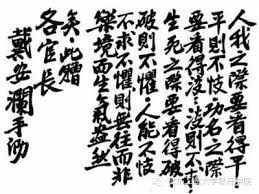 人我之際要看得平
平則不忮功名之際
要看得淡淡則不求
生死之際要看得破
破則不懼人能不忮
不求不懼則無往而非
樂境而生氣盎然
矣此贈
各官長
戴安瀾手泐